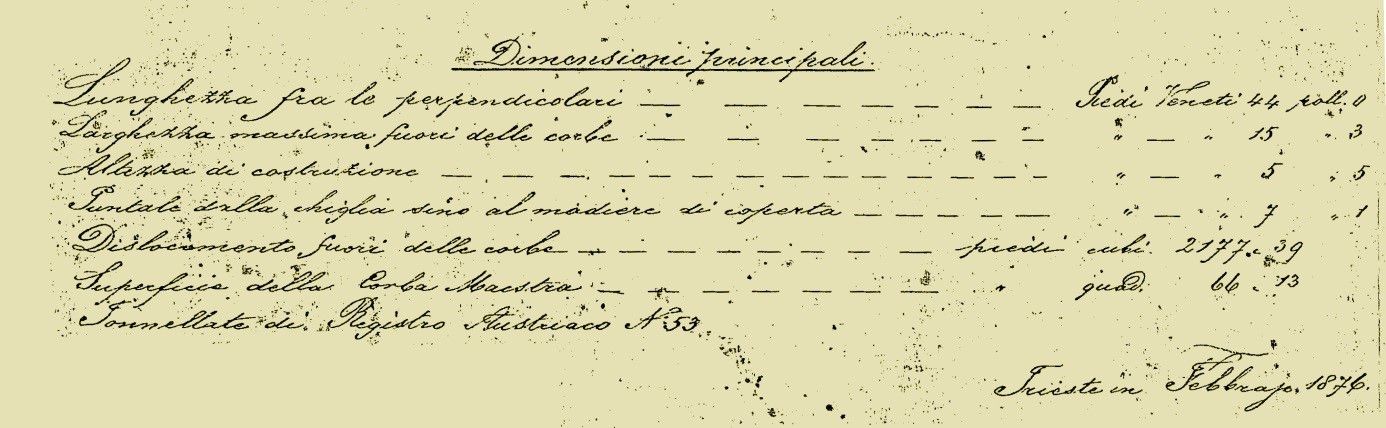 Dimensioni principali.
Lunghezza fra le perpendicolari — — — — — — — — Piedi Veneti 44 poll. 0
Larghezza massima fuori delle corbe — — — — — — — — " — " 15 " 3
Altezza di costruzione — — — — — — — — — — — — — — " — " 5 " 5
Puntale dalla chiglia sino al madiere di coperta — — — — — — " — " 7 " 1
Dislocamento fuori delle corbe — — — — — — — — — piedi cubi. 2177. 39
Superficie della Corba Maestra — — — — — — — — " quad. 66. 13
Tonnellate di Registro Austriaco No 53.
Trieste in Febbrajo. 1876.